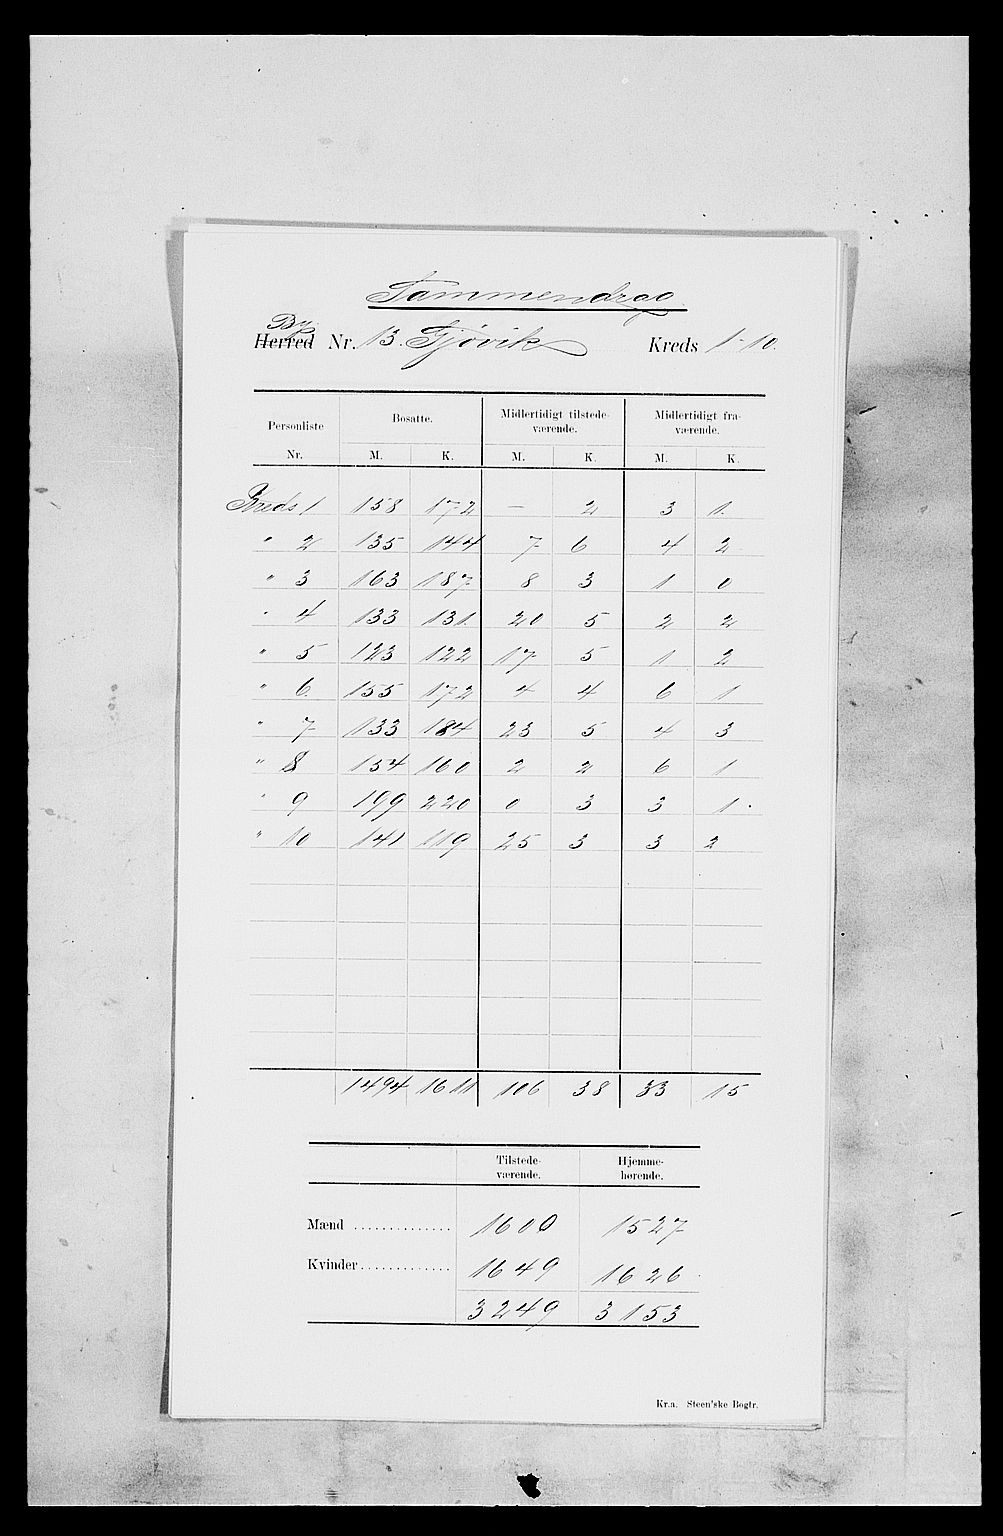 Sammendrag
By
Herred Nr. 13. Gjøvik Kreds 1-10.
Personliste Bosatte. Midlertidigt tilstede- Midlertidigt fra-
værende. værende.
Nr. M. K. M. K. M. K.
Kreds 1 158 172 — 2 3 1.
" 2 135 144 7 6 4 2
" 3 163 187 8 3 1 0
" 4 133 131. 20 5 2 2
" 5 123 122 17 5 1 2
" 6 155 172 4 4 6 1
" 7 133 184 23 5 4 3
" 8 154 160 2 2 6 1
" 9 199 220 0 3 3 1.
" 10 141 119 25 3 3 2
1494 1611 106 38 33 15
Tilstede- Hjemme-
værende. hørende.
Mænd .............. 1600 1527
Kvinder ............. 1649 1626
3249 3153
Kr.a. Steen'ske Bogtr.